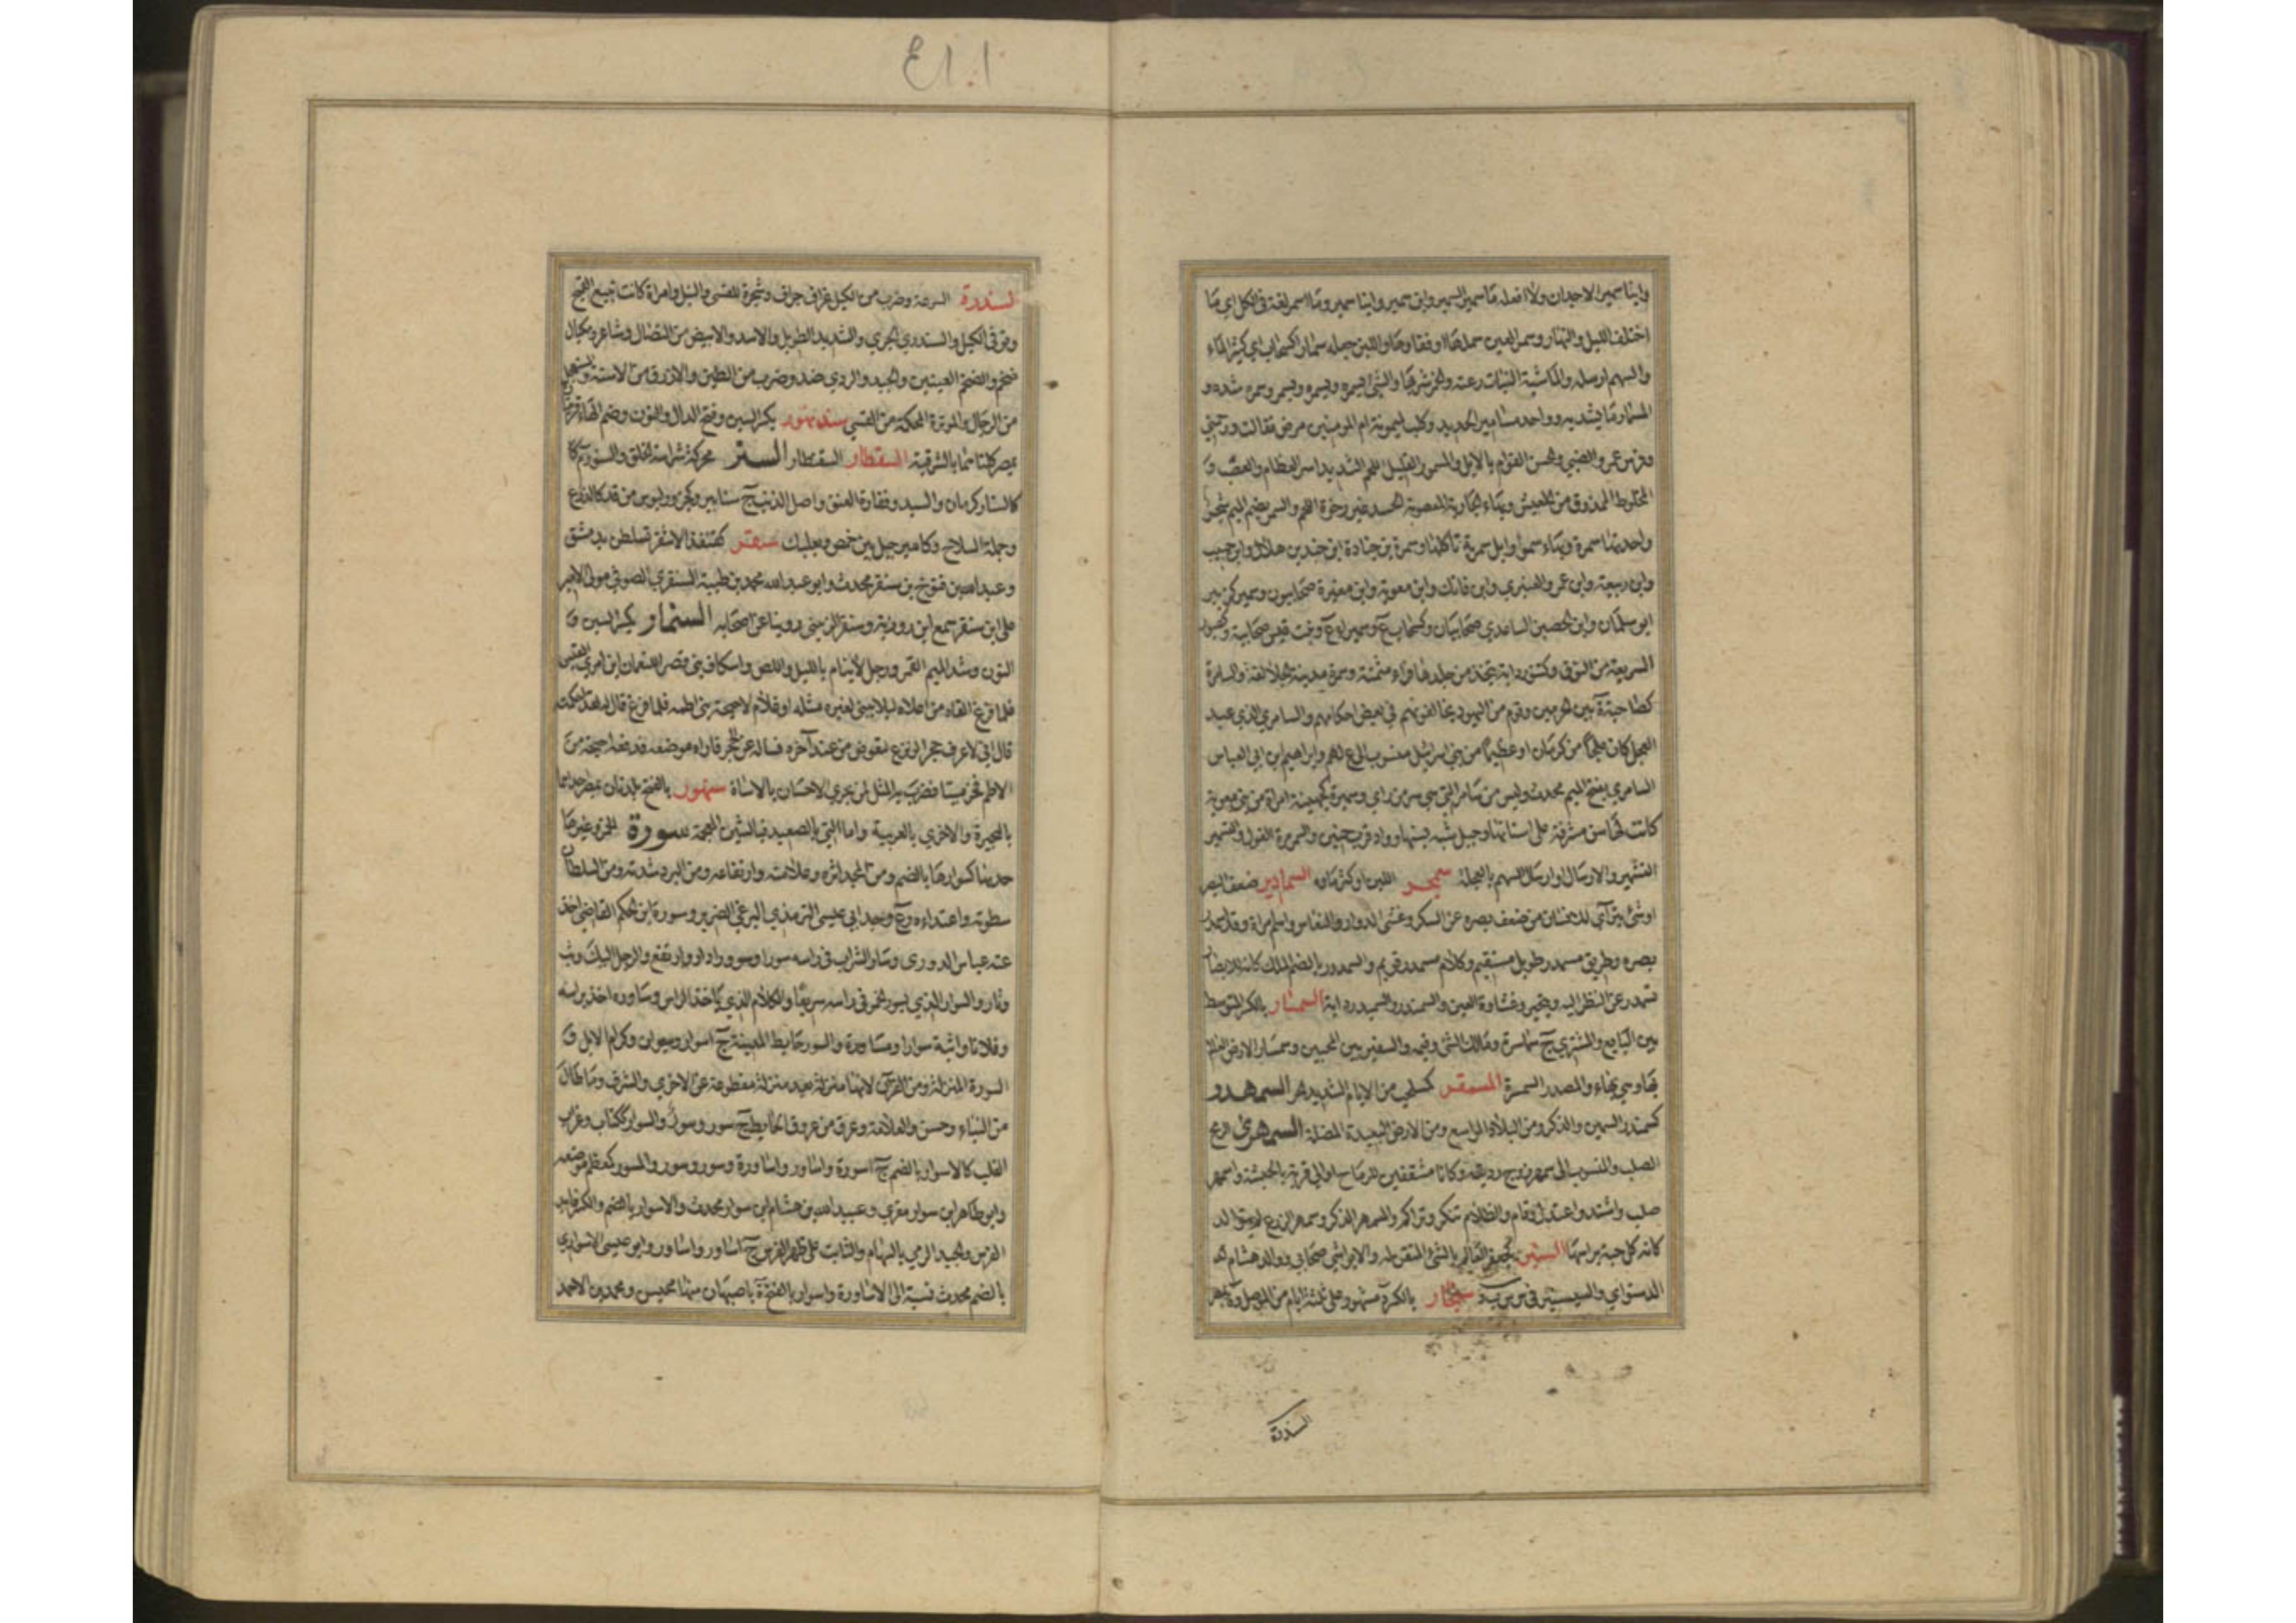 وابنا سمير الاجدان ولا افعله ما سمر السمير وابن سمير وابنا سمير وما اسمر لغة في الكل اي ما
اختلف الليل والنهار وسمر العين سملها او فقاها واللبن جعله سمارا كسحاب اي كثير الماء
والسهم ارسله والماشية النبات رعته والخمر شربها والشئ يسمره ويسمره وسمره شده و
المسمار ما يشد به وواحد مسامير الحديد وكلب لميمونة ام المومنين مرض فقالت وارحمتي
وفرس عمرو الضبي والحسن القوام بالابل والمسمور القليل اللحم الشديد اسر العظام والعصب و
المخلوط الممذوق من العيش وبهاء الجارية المعصوبة الجسد غير رخوة اللحم والسمر بضم الميم شجر
واحدتها سمرة وبهاء سموا وابل سمرية تاكلها وسمرة بن جنادة ابن جندب بن هلال وابن حبيب
وابن ربيعة وابن عمرو العنبري وابن فاتك وابن معوية وابن معيرة صحابيون وسمير كزبير
ابو سلمان وابن الحصين الساعدي صحابيان وكسحاب ع وسميراء ع وبنت قيس صحابية و
السريعة من النوق وكتنور دابة يتخذ من جلدها فراء مثمنة وسمرة مدينة الجلالقة والسامرة
كصاحبة ة بين الحرمين وقوم من اليهود يخالفونهم في بعض احكامهم والسامري الذي عبد
العجل كان علجا من كرمان او عظيما من بني اسرائيل منسوب الى ع لهم وابراهيم ابن ابي العباس
السامري بفتح الميم محدث وليس من سامرا التي هي سر من راي وسميرة كجهينة امراة من بني معوية
كانت لها سن مشرفة على اسنانها وجبل شبه بسنها وواد قرب حنين والسمرمرة الغول والتسمير
التشمير والارسال او ارسال السهم بالعجلة سمجر اللبن اوكثر ماؤه السمادير ضعف البصر
او شئ يترآي للانسان من ضعف بصره عن السكر وغشى الدوار والنعاس واسم امراة وقد اسمدر
بصره وطريق مسمدر طويل مستقيم وكلام مسمدر قويم والسمدور بالضم الملك كانه لان الابصار
تسمدر عن النظر اليه وتتحير وغشاوة العين والسمندر والسميدر دابة السمسار بالكسر المتوسط
بين البايع والمشتري ج سماسرة ومالك الشئ وقيمه والسفير بين المحبين وسمسار الارض العالم
بها وهي بهاء والمصدر السمسرة المسمقر كسلحب من الايام الشديد الحر السمهدر
كسمندر السمين والذكر ومن البلاد الواسع ومن الارض البعيدة المضلة السمهري الرمح
الصلب والمنسوب الى سمهر زوج ردينة وكانا مثقفين للرماح او الى قرية بالحبشة واسمهر
صلب واشتد واعتدل وقام والظلام تنكر وتراكم والمسمهر الذكر وسمهر الزرع لم يتوالد
كانه كل حبة براسها السنبر كجعفر العالم بالشئ المتقن له والابراشي صحابي ووالد هشام
الدستواي والسيسنبر في س ب ر سنجار بالكسر د مشهور على ثلثة ايام من الموصل وة بمصر
السندرة
السندرة السرعة وضرب من الكيل غراف جراف وشجرة للقسي والنبل وامراة كانت تبيع القمح
وتوفي الكيل والسندري الجري والشديد الطويل والاسد والابيض من النصال وشاعر ومكيال
ضخم والضخم العينين والجيد والردي ضد وضرب من الطير والازرق من الاسنة والمستعجل
من الرجال والموترة المحكمة من القسي سندنهور بكسر السين وفتح الدال والنون وضم الهاء قريتان
بمصر كلتاهما بالشرقية السقطار السقطار السنر محركة شراسة الخلق والسنور م
كالسنار كرمان والسيد وفقارة العنق واصل الذنب ج سنانير وكجرول لبوس من قد كالدرع
وجملة السلاح وكامير جبل بين حمص وبعلبك سنقر كقنفذ الاشقر تسلطن بدمشق
وعبد الله بن فتوح بن سنقر محدث وابو عبد الله محمد بن طيبة السنقري الصوفي مولى الامير
علي ابن سنقر سمع ابن روزبة وسنقر الزيني روينا عن اصحابه السنمار بكسر السين و
النون وشد الميم القمر ورجل لا ينام بالليل واللص واسكاف بنى قصر للنعمان ابن امري القيس
فلما فرغ القاه من اعلاه ليلا يبني لغيره مثله او غلام لاحيحة بنى اطمه فلما فرغ قال له لقد احكمت
قال اني لاعرف حجرا لو نزع لتقوض من عند آخره فساله عن الحجر فاراه موضعه فدفعه احيحة من
الاطم فخر ميتا فضرب به المثل لمن يجزي الاحسان بالاساءة سنهور بالفتح بلدتان بمصر احدهما
بالبحيرة والاخري بالغربية واما التي بالصعيد فبالشين المعجمة سورة الخمر وغيرها
حدتها كسوارها بالضم ومن المجد اثره وعلامته وارتفاعه ومن البرد شدته ومن السلطان
سطوته واعتداءه وع وجد ابي عيسى الترمذي البوغي الضرير وسورة ابن الحكم القاضي اخذ
عنه عباس الدوري وسار الشراب في راسه سورا وسوورا دار وارتفع والرجل اليك وثب
وثار والسوار الذي يسور الخمر في راسه سريعا والكلام الذي ياخذ الراس وساوره اخذ براسه
وفلانا واثبه سوارا ومساورة والسور حايط المدينة ج اسوار وسيران وكرام الابل و
السورة المنزلة ومن القرآن لانها منزلة بعد منزلة مقطوعة عن الاخري والشرف وما طال
من البناء وحسن والعلامة وعرق من عروق الحايط ج سور وسور والسوار ككتاب وغراب
القلب كالاسوار بالضم ج اسورة واساور واساورة وسور وسوور والمسور كمعظم موضعه
وابو طاهر ابن سوار مقري وعبيد الله بن هشام ابن سوار محدث والاسوار بالضم والكسر قايد
الفرس والجيد الرمي بالسهام والثابت على ظهر الفرس ج اساور واساور وابو عيسى الاسواري
بالضم محدث نسبة الى الاساورة واسوار بالفتح ة باصبهان منها محيس ومحمد بن الاحمد